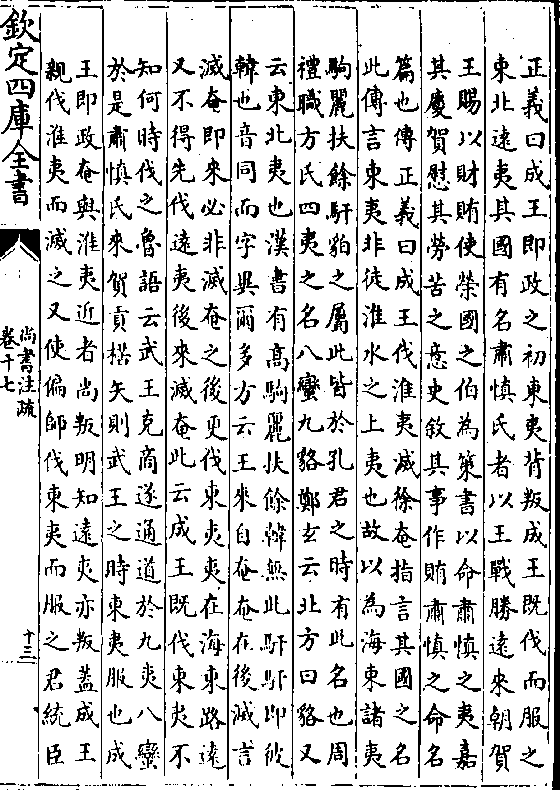 正義曰成王即政之初東夷背叛成王既伐而服之
東北遠夷其國有名肅慎氏者以王戰勝遠來朝賀
王賜以財賄使榮國之伯為策書以命肅慎之夷嘉
其慶賀慰其勞苦之意史敘其事作賄肅慎之命名
篇也傳正義曰成王伐淮夷滅徐奄指言其國之名
此傳言東夷非徒淮水之上夷也故以為海東諸夷
駒麗扶餘馯貊之屬此皆於孔君之時有此名也周
禮職方氏四夷之名八蠻九貉鄭玄云北方曰貉又
云東北夷也漢書有高駒麗扶餘韓無此馯馯即彼
韓也音同而字異爾多方云王來自奄奄在後滅言
滅奄即來必非滅奄之後更伐東夷夷在海東路遠
又不得先伐遠夷後來滅奄此云成王既伐東夷不
知何時伐之魯語云武王克商遂通道於九夷八蠻
於是肅慎氏來賀貢楛矢則武王之時東夷服也成
王即政奄與淮夷近者尚叛明知遠夷亦叛蓋成王
親伐淮夷而滅之又使偏師伐東夷而服之君統臣
欽定四庫全書
尚書注疏
卷十七
十三